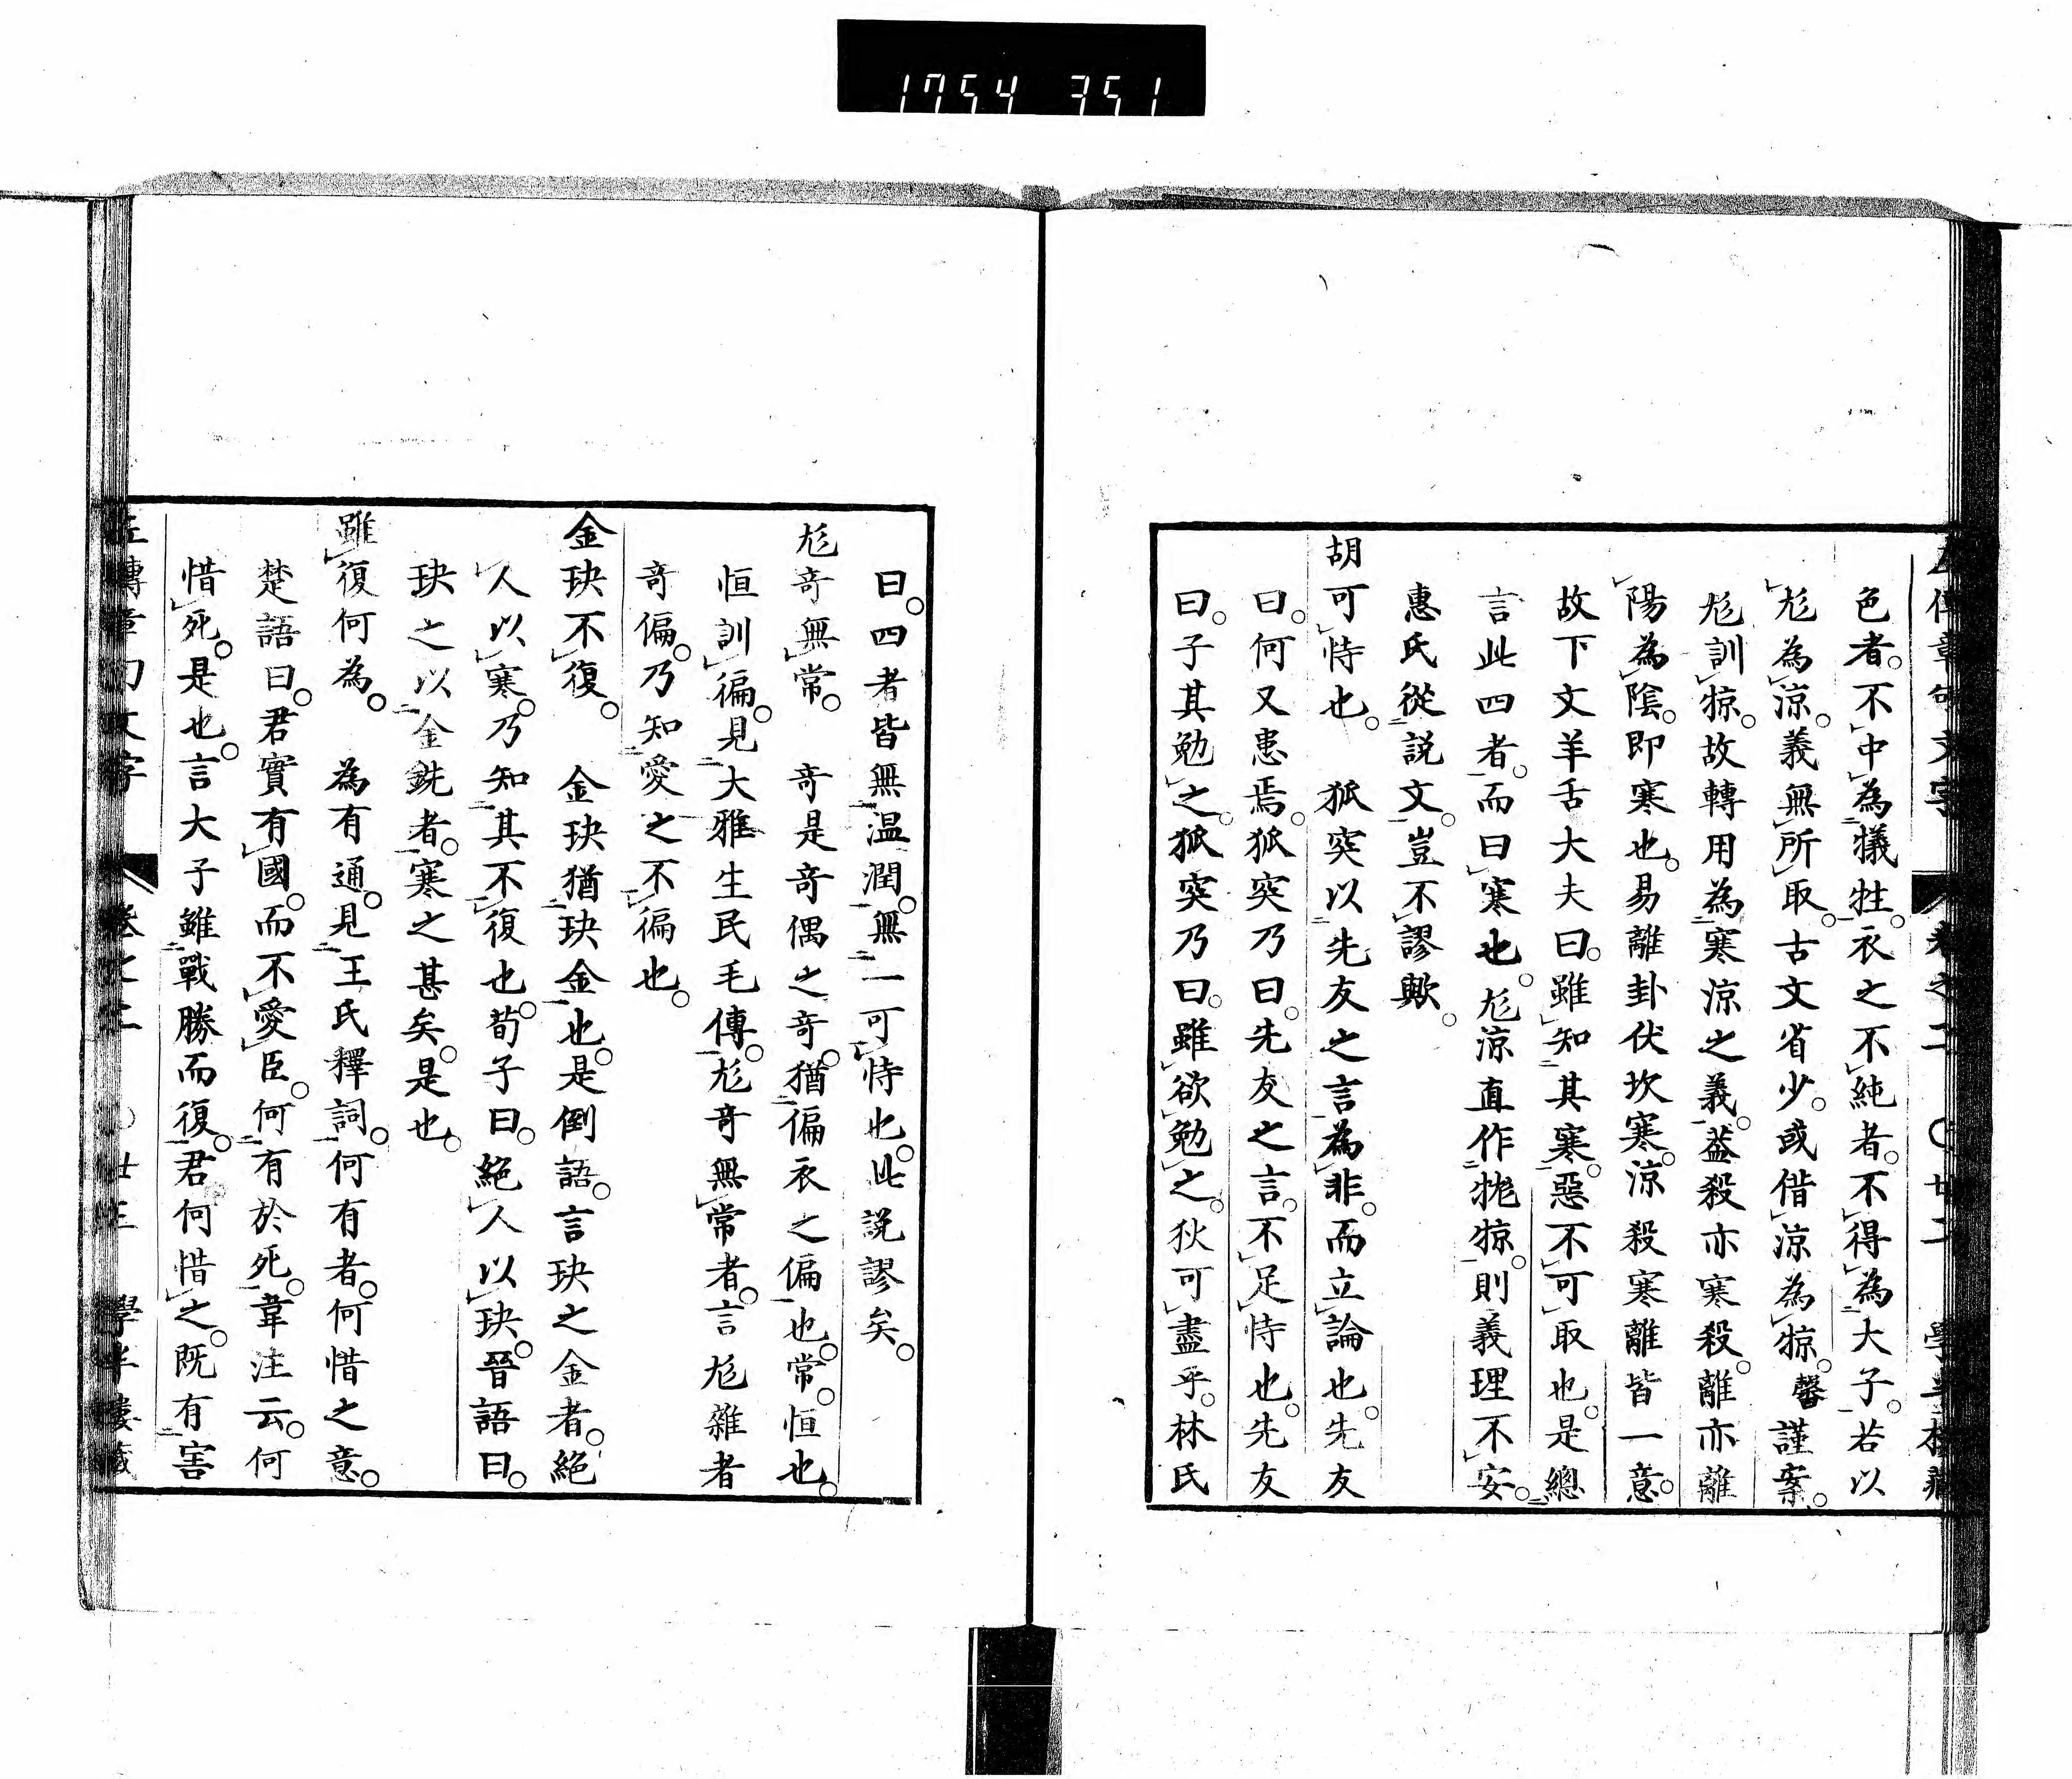 1754 351
色者。不中為犠牲。衣之不純者。不得為大子。若以
尨為涼。義無所取。古文省少。或借涼為㹁。馨謹案。
尨訓㹁。故轉用為寒涼之義。蓋殺亦寒殺。離亦離
陽為陰。即寒也。易離卦伏坎寒。涼殺寒離皆一意。
故下文羊舌大夫曰。雖知其寒。惡不可取也。是總
言此四者。而曰寒也。尨涼直作牻㹁。則義理不安。
惠氏從説文。豈不謬歟。
胡可恃也。 狐突以先友之言為非。而立論也。先友
曰。何又患焉。狐突乃曰。先友之言。不足恃也。先友
曰。子其勉之。狐突乃曰。雖欲勉之。狄可盡乎。林氏
曰。四者皆無温潤。無一可恃也。此説謬矣。
尨奇無常。 奇是奇偶之奇。猶偏衣之偏也。常。恒也。
恒訓徧。見大雅生民毛傳。尨奇無常者。言尨雜者
奇偏。乃知愛之不徧也。
金玦不復。 金玦猶玦金也。是倒語。言玦之金者。絶
人以寒。乃知其不復也。荀子曰。絶人以玦。晉語曰。
玦之以金銑者。寒之甚矣。是也。
雖復何為。 為有通。見王氏釋詞。何有者。何惜之意。
楚語曰。君實有國。而不愛臣。何有於死。韋注云。何
惜死。是也。言大子雖戰勝而復。君何惜之。既有害